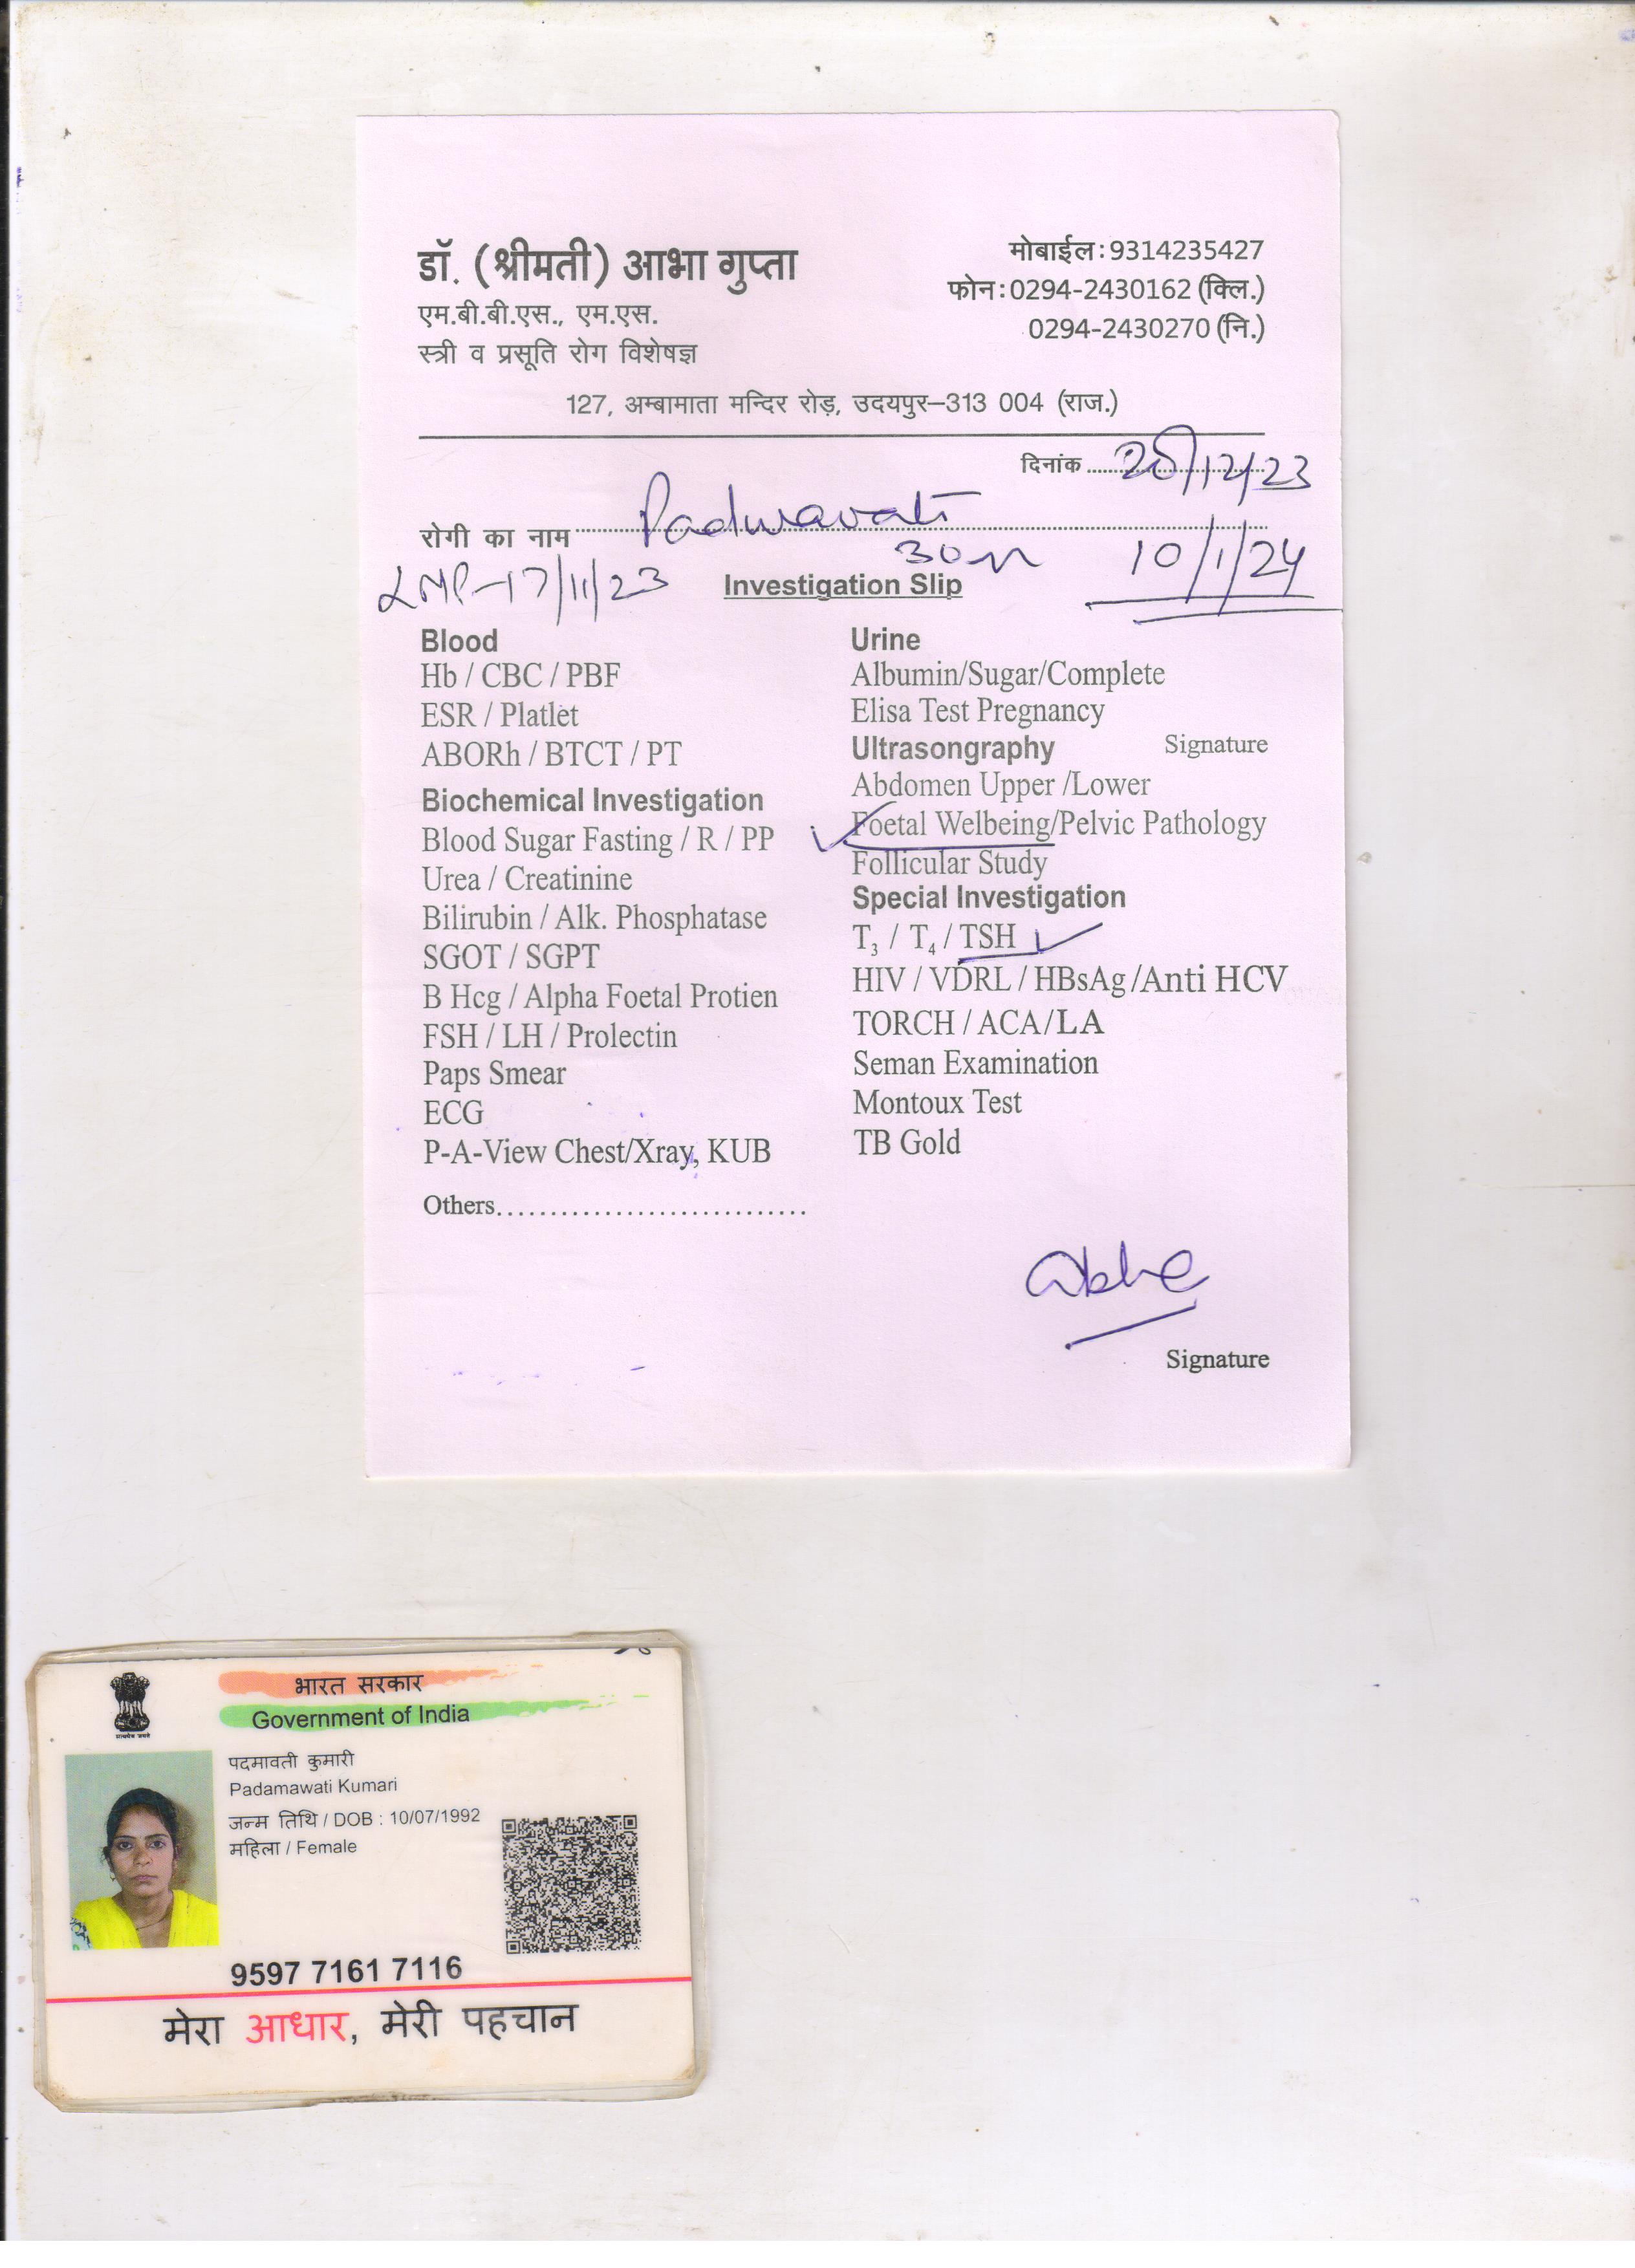 डॉ. (श्रीमती) आभा गुप्ता
एम.बी.बी.एस., एम.एस.
स्त्री व प्रसूति रोग विशेषज्ञ
मोबाईल: 9314235427
फोन: 0294-2430162 (क्लि.)
0294-2430270 (नि.)
127, अम्बामाता मन्दिर रोड़, उदयपुर–313 004 (राज.)
दिनांक ........ /12/23
रोगी का नाम ........ Padmavati
LMP-17/11/23
10/1/24
Investigation Slip
Blood
Hb / CBC / PBF
ESR / Platlet
ABORh / BTCT / PT
Biochemical Investigation
Blood Sugar Fasting / R / PP
Urea / Creatinine
Bilirubin / Alk. Phosphatase
SGOT / SGPT
B Hcg / Alpha Foetal Protien
FSH / LH / Prolectin
Paps Smear
ECG
P-A-View Chest/Xray, KUB
Others..............................
Urine
Albumin/Sugar/Complete
Elisa Test Pregnancy
Ultrasongraphy Signature
Abdomen Upper /Lower
Foetal Welbeing/Pelvic Pathology
Follicular Study
Special Investigation
T₃ / T₄ / TSH
HIV / VDRL / HBsAg /Anti HCV
TORCH / ACA/LA
Seman Examination
Montoux Test
TB Gold
Signature
भारत सरकार
Government of India
पदमावती कुमारी
Padamawati Kumari
जन्म तिथि / DOB : 10/07/1992
महिला / Female
9597 7161 7116
मेरा आधार, मेरी पहचान